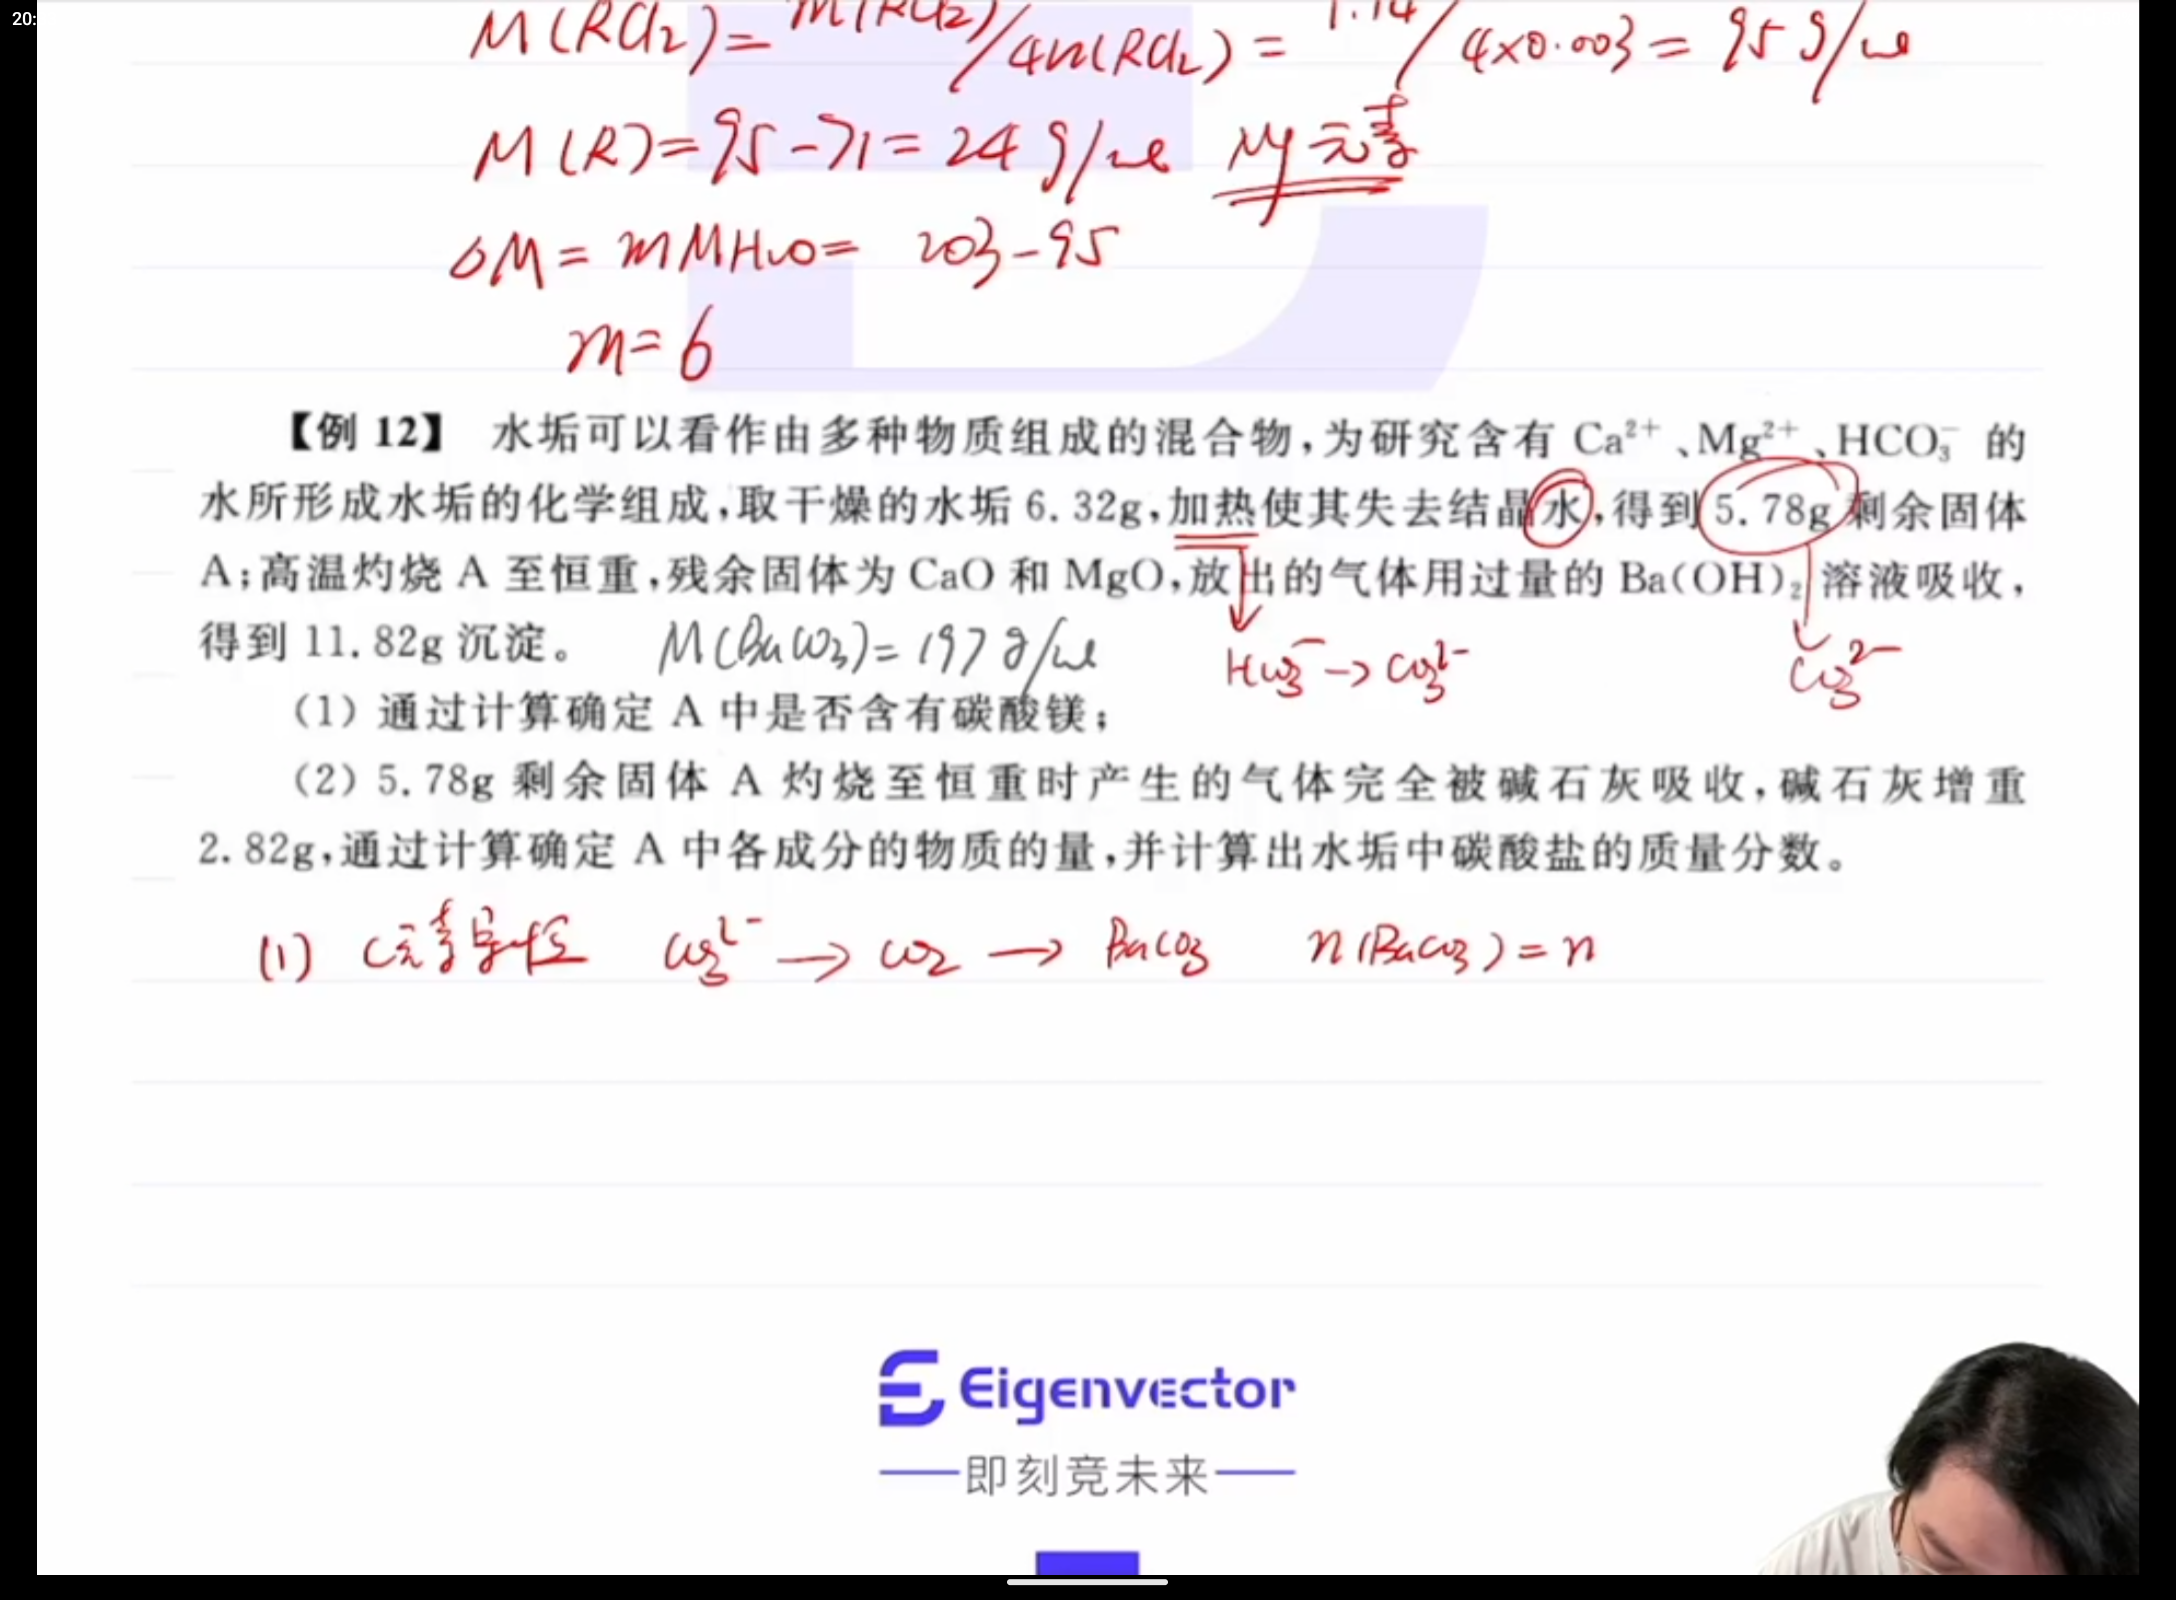 20:
M(RCl₂)= m(RCl₂)/4n(RCl₂) = 1.14/4×0.003 = 95 g/mol
M(R)=95-71=24 g/mol Mg元素
ΔM = mM H₂O = 203-95
m=6
【例 12】 水垢可以看作由多种物质组成的混合物,为研究含有 Ca²⁺、Mg²⁺、HCO₃⁻ 的
水所形成水垢的化学组成,取干燥的水垢 6.32g,加热使其失去结晶水,得到 5.78g 剩余固体
A;高温灼烧 A 至恒重,残余固体为 CaO 和 MgO,放出的气体用过量的 Ba(OH)₂ 溶液吸收,
得到 11.82g 沉淀。 M(BaCO₃)=197 g/mol
HCO₃⁻→CO₃²⁻ CO₃²⁻
(1) 通过计算确定 A 中是否含有碳酸镁;
(2) 5.78g 剩余固体 A 灼烧至恒重时产生的气体完全被碱石灰吸收,碱石灰增重
2.82g,通过计算确定 A 中各成分的物质的量,并计算出水垢中碳酸盐的质量分数。
(1) C元素守恒 CO₃²⁻ → CO₂ → BaCO₃ n(BaCO₃)=n
Eigenvector
即刻竞未来